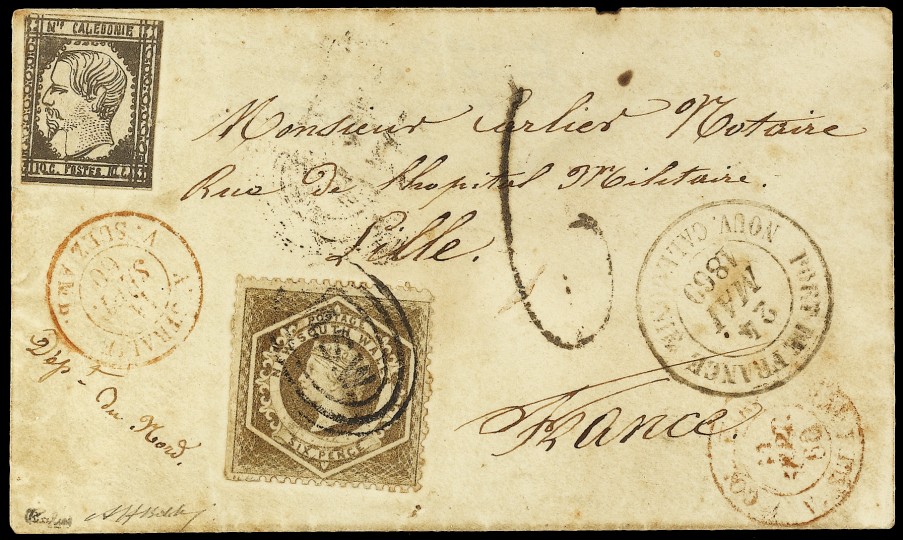 Nlle CALEDONIE
10. C. POSTES 10. C.
Monsieur Carlier Notaire
Rue de lhopital Mre Militaire.
Lille.
6
PORT DE FRANCE
NOUV. CALEDONIE
24
MAI
1860
V. SUEZ
POSTAGE
NEW SOUTH WALES
SIX PENCE
Dépt
du Nord.
France.